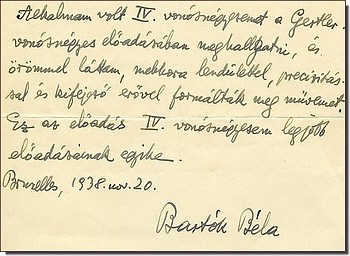 Alkalmam volt IV. vonósnégyesemet a Gertler-
vonósnégyes előadásában meghallgatni, és
örömmel láttam, mekkora lendülettel, precizitás-
sal és kifejező erővel formálták meg művemet.
Ez az előadás IV. vonósnégyesem legjobb
előadásainak egyike.
Bruxelles, 1938. nov. 20.
Bartók Béla